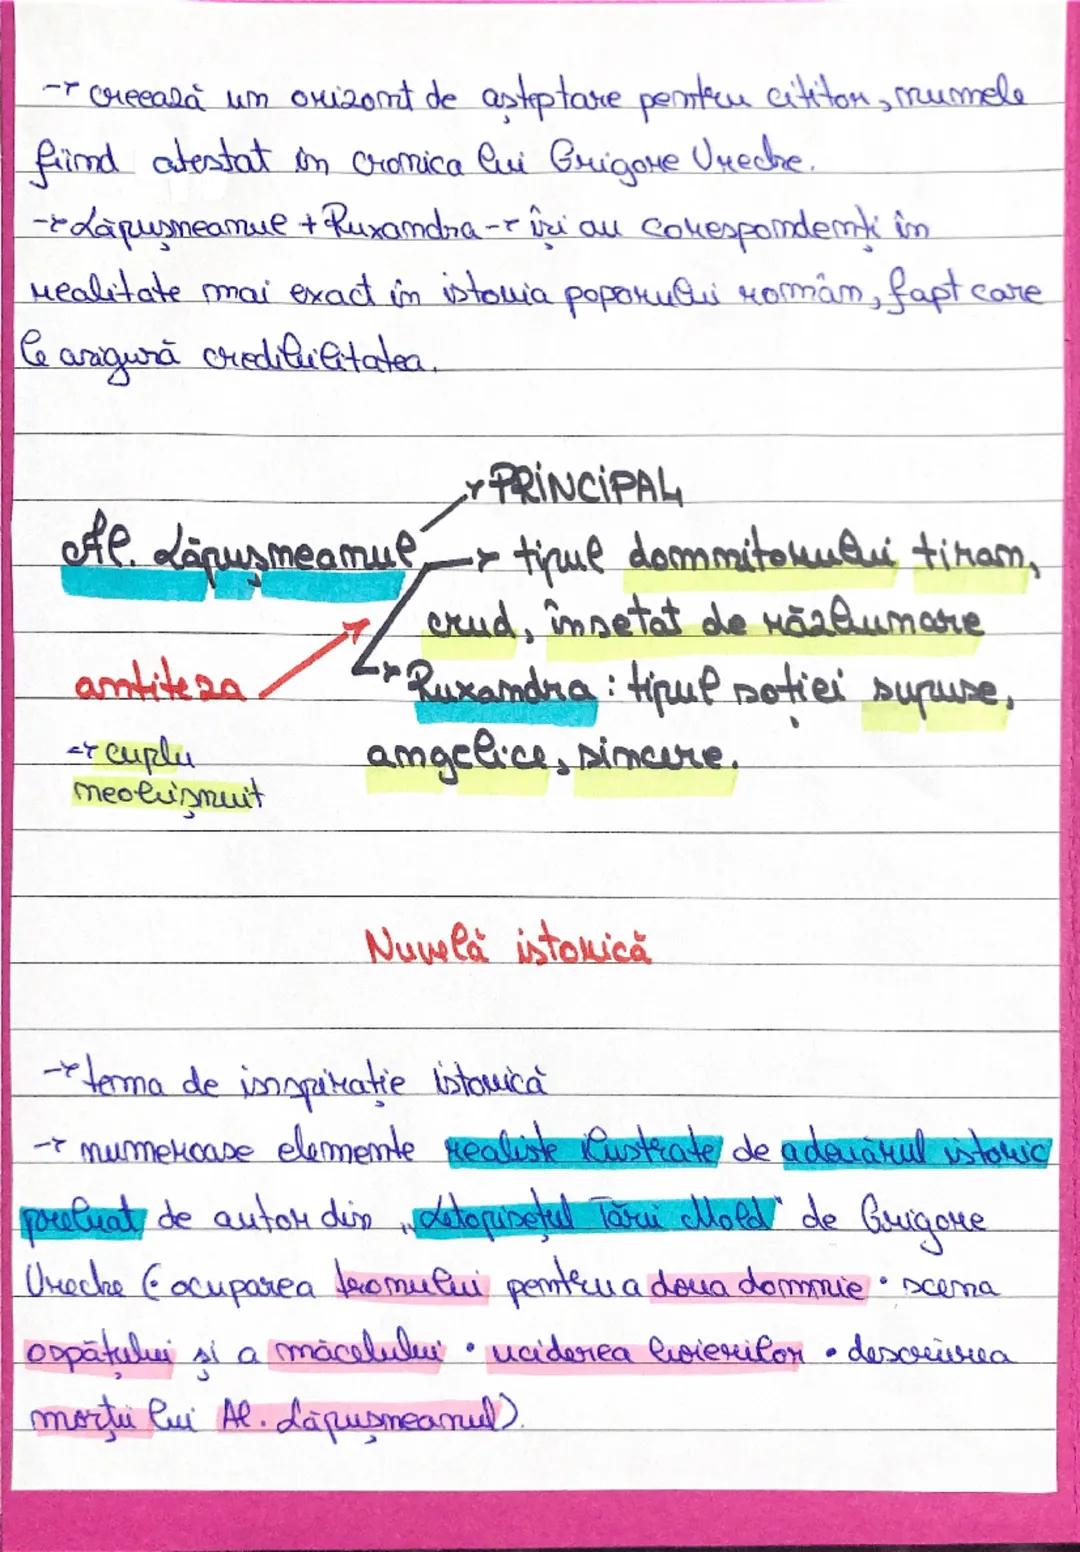 → creează un orizont de așteptare pentru cititor, numele
fiind atestat în cronica lui Grigore Ureche.
→ Lăpușneanul + Ruxandra → își au corespondenți în
realitate mai exact în istoria poporului român, fapt care
le asigură credibilitatea.
→ PRINCIPAL
Al. Lăpușneanul → tipul domnitorului tiran,
crud, însetat de răzbunare
antiteza → Ruxandra: tipul soției supuse,
→ cuplu angelice, sincere.
neobișnuit
Nuvelă istorică
→ tema de inspirație istorică
→ numeroase elemente realiste ilustrate de adevărul istoric
preluat de autor din „Letopisețul Țării Mold" de Grigore
Ureche (• ocuparea tronului pentru a doua domnie • scena
ospățului și a măcelului • uciderea boierilor • descrierea
morții lui Al. Lăpușneanul).